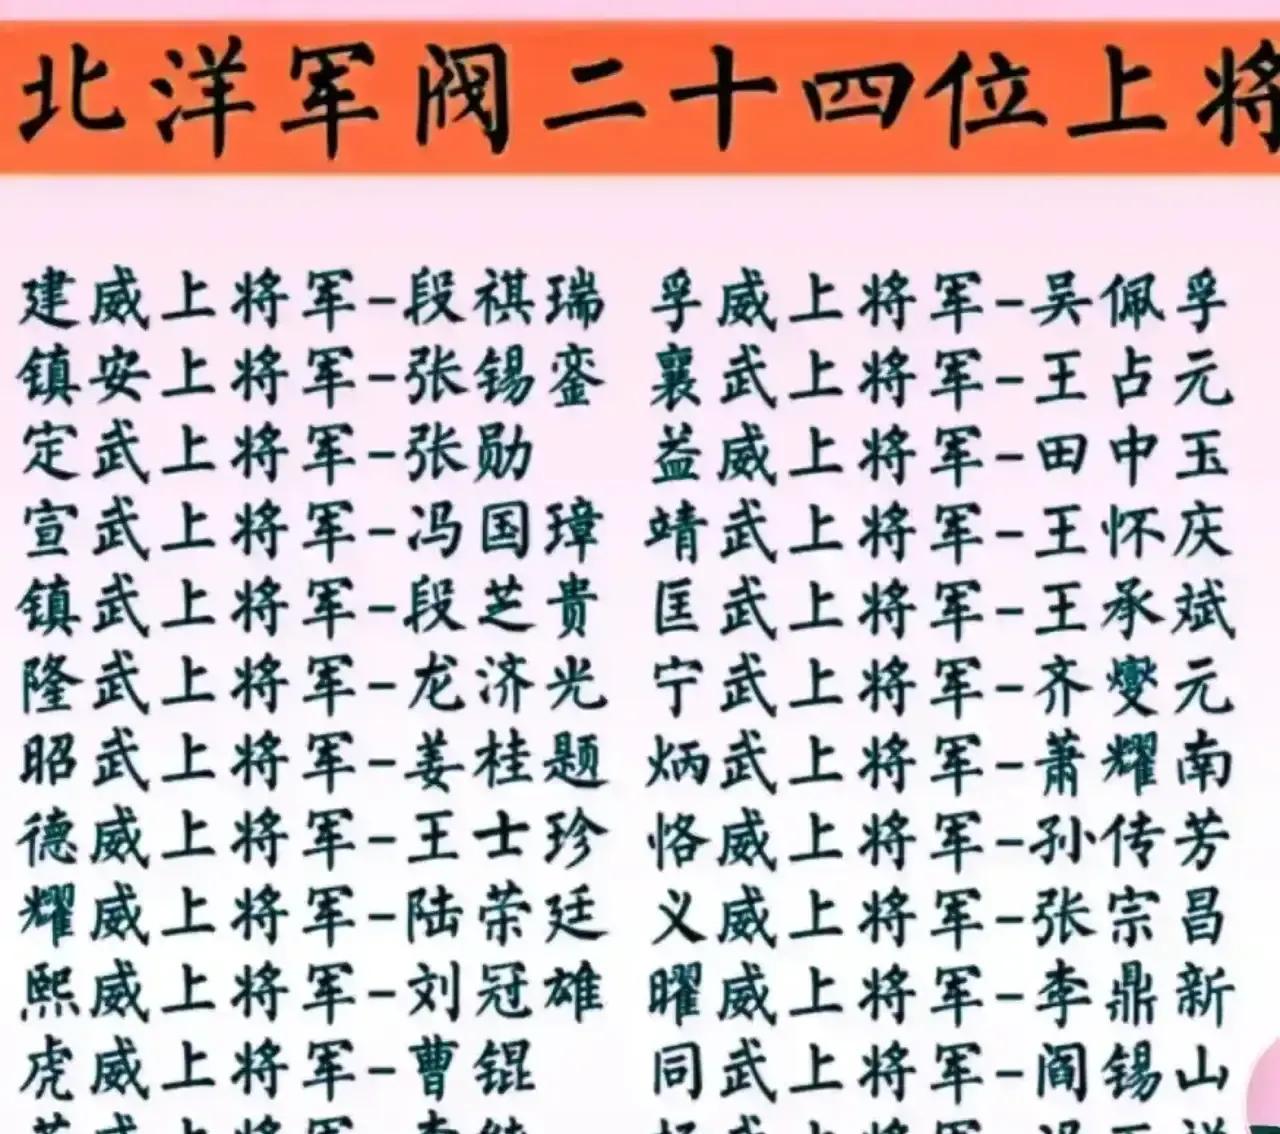 北洋军阀二十四位上将
建威上将军-段祺瑞 孚威上将军-吴佩孚
镇安上将军-张锡銮 襄武上将军-王占元
定武上将军-张勋 益威上将军-田中玉
宣武上将军-冯国璋 靖武上将军-王怀庆
镇武上将军-段芝贵 匡武上将军-王承斌
隆武上将军-龙济光 宁武上将军-齐燮元
昭武上将军-姜桂题 炳武上将军-萧耀南
德威上将军-王士珍 恪威上将军-孙传芳
耀威上将军-陆荣廷 义威上将军-张宗昌
熙威上将军-刘冠雄 曜威上将军-李鼎新
虎威上将军-曹锟 同武上将军-阎锡山